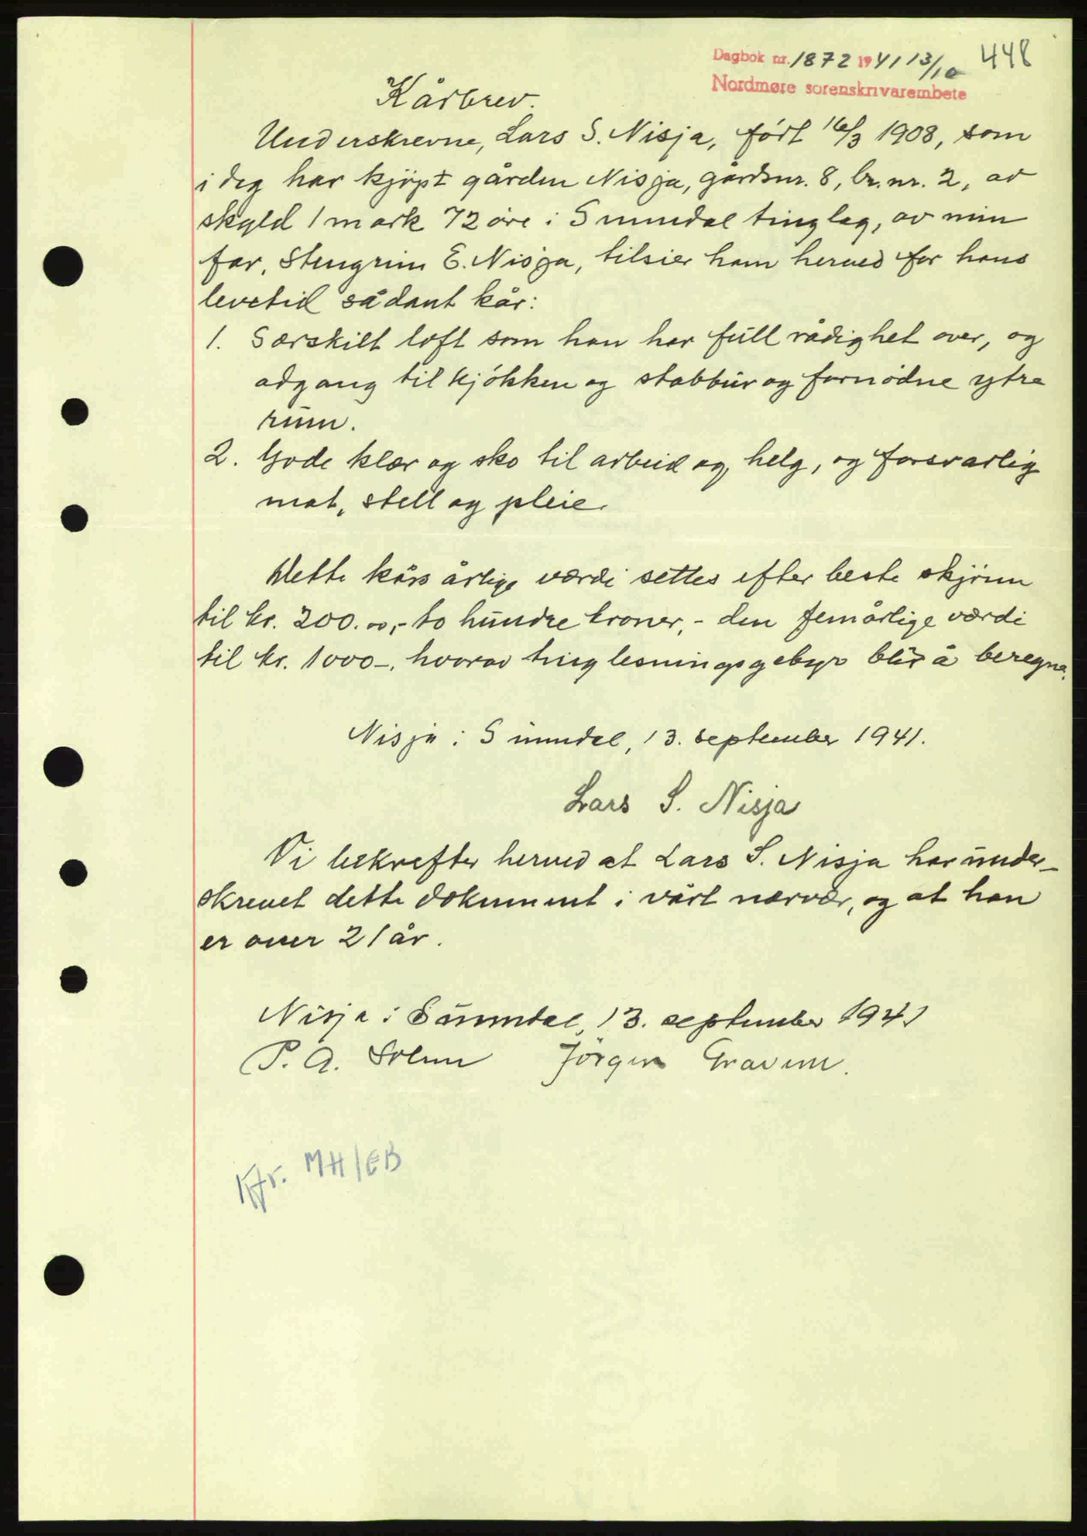 Dagbok nr. 1872 1941 13/10 448
Nordmøre sorenskrivarembete
Kårbrev.
Underskrevne, Lars S. Nisja, født 16/3 1908, som
i dag har kjøpt gården Nisja, gårdsnr. 8, br.nr. 2, av
skyld 1 mark 72 øre i Sunndal tinglag, av min
far, Stengrim E. Nisja, tilsier ham herved for hans
levetid sådant kår:
1. Særskilt loft som han har full rådighet over, og
adgang til kjøkken og stabbur og fornødne ytre
rum.
2. Gode klær og sko til arbeid og helg, og forsvarlig
mat, stell og pleie.
Dette kårs årlige værdi settes efter beste skjønn
til kr. 200.00,- to hundre kroner,- den femårlige værdi
til kr. 1000-, hvorav tinglesningsgebyr blir å beregne.
Nisja i Sunndal, 13. september 1941.
Lars S. Nisja
Vi bekrefter herved at Lars S. Nisja har under-
skrevet dette dokument i vårt nærvær, og at han
er over 21 år.
Nisja i Sunndal, 13. september 1941
P. A. Solem Jørgen Gravem.
Kfr. MH/EB